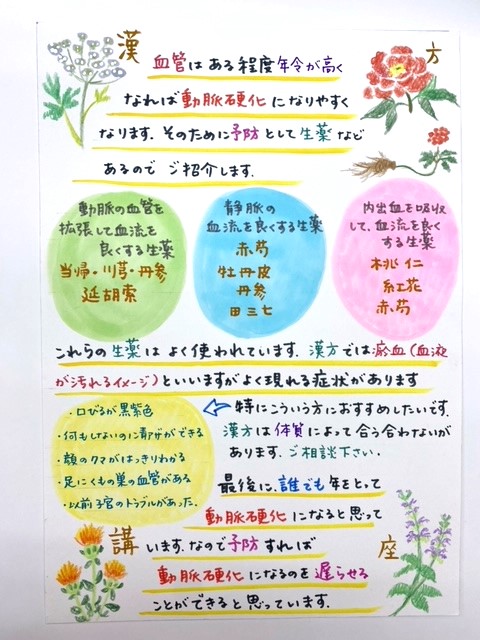 漢方
血管はある程度年令が高く
なれば動脈硬化になりやすく
なります。そのために予防として生薬など
あるのでご紹介します。
動脈の血管を
拡張して血流を
良くする生薬
当帰・川芎・丹参
延胡索
静脈の
血流を良くする生薬
赤芍
牡丹皮
丹参
田三七
内出血を吸収
して、血流を良く
する生薬
桃仁
紅花
赤芍
これらの生薬はよく使われています。漢方では瘀血(血液
が汚れるイメージ)といいますがよく現れる症状があります
・口びるが黒紫色
・何もしないのに青アザができる
・顔のクマがはっきりわかる
・足にくもの巣の血管がある
・以前子宮のトラブルがあった。
特にこういう方におすすめしたいです。
漢方は体質によって合う合わないが
あります。ご相談下さい。
最後に、誰でも年をとって
動脈硬化になると思って
講座
います。なので予防すれば
動脈硬化になるのを遅らせる
ことができると思っています。